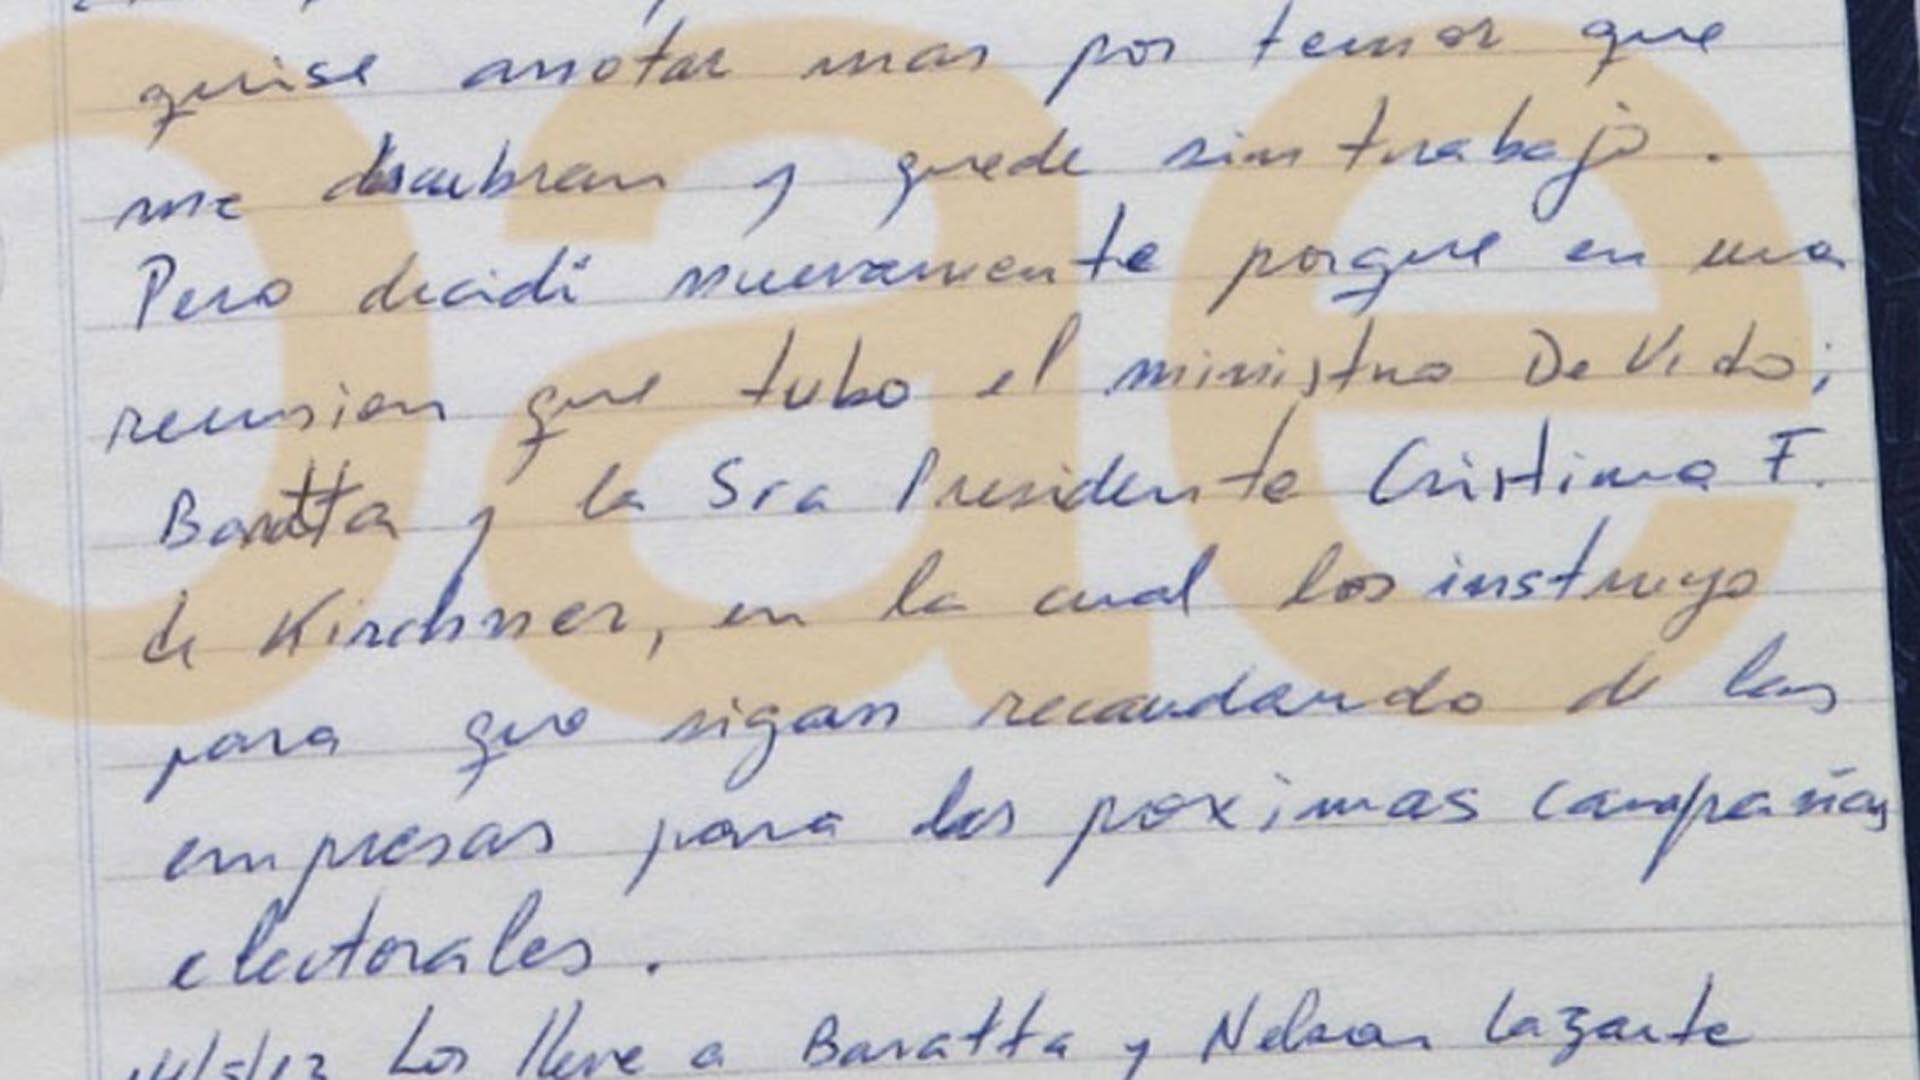 quise anotar mas por temor que
me descubran y quede sin trabajo.
Pero decidi nuevamente porque en una
reunion que tubo el ministro De Vido;
Baratta y la Sra Presidente Cristina F.
de Kirchner, en la cual los instruyo
para que sigan recaudando de las
empresas para las poximas campañas
electorales.
Los lleve a Baratta y Nelson Lazarte